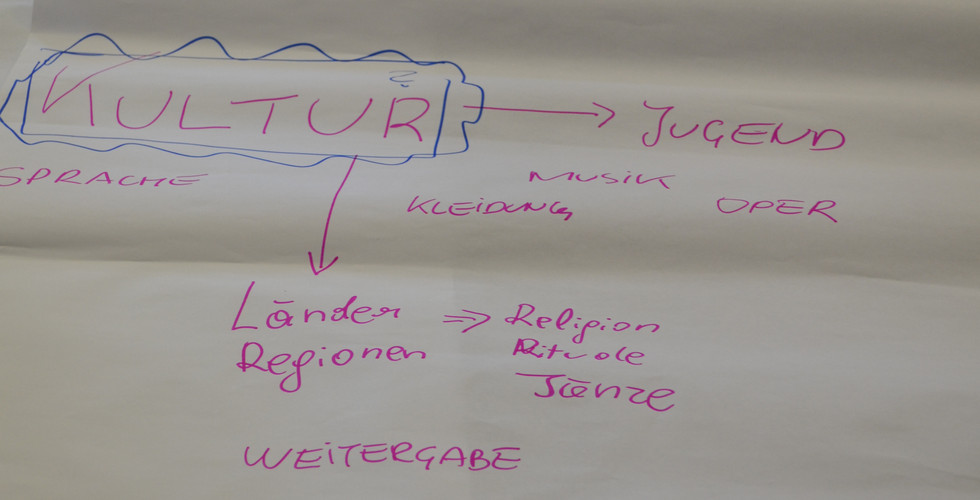 KULTUR → JUGEND
SPRACHE
MUSIK
KLEIDUNG
OPER
Länder ⇒ Religion
Regionen
Rituale
Tänze
WEITERGABE